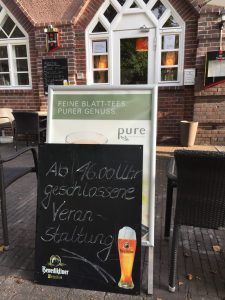 FEINE BLATT-TEES
PURER GENUSS
pure
Ab 16.00 Uhr
geschlossene
Veran-
staltung
Benediktiner